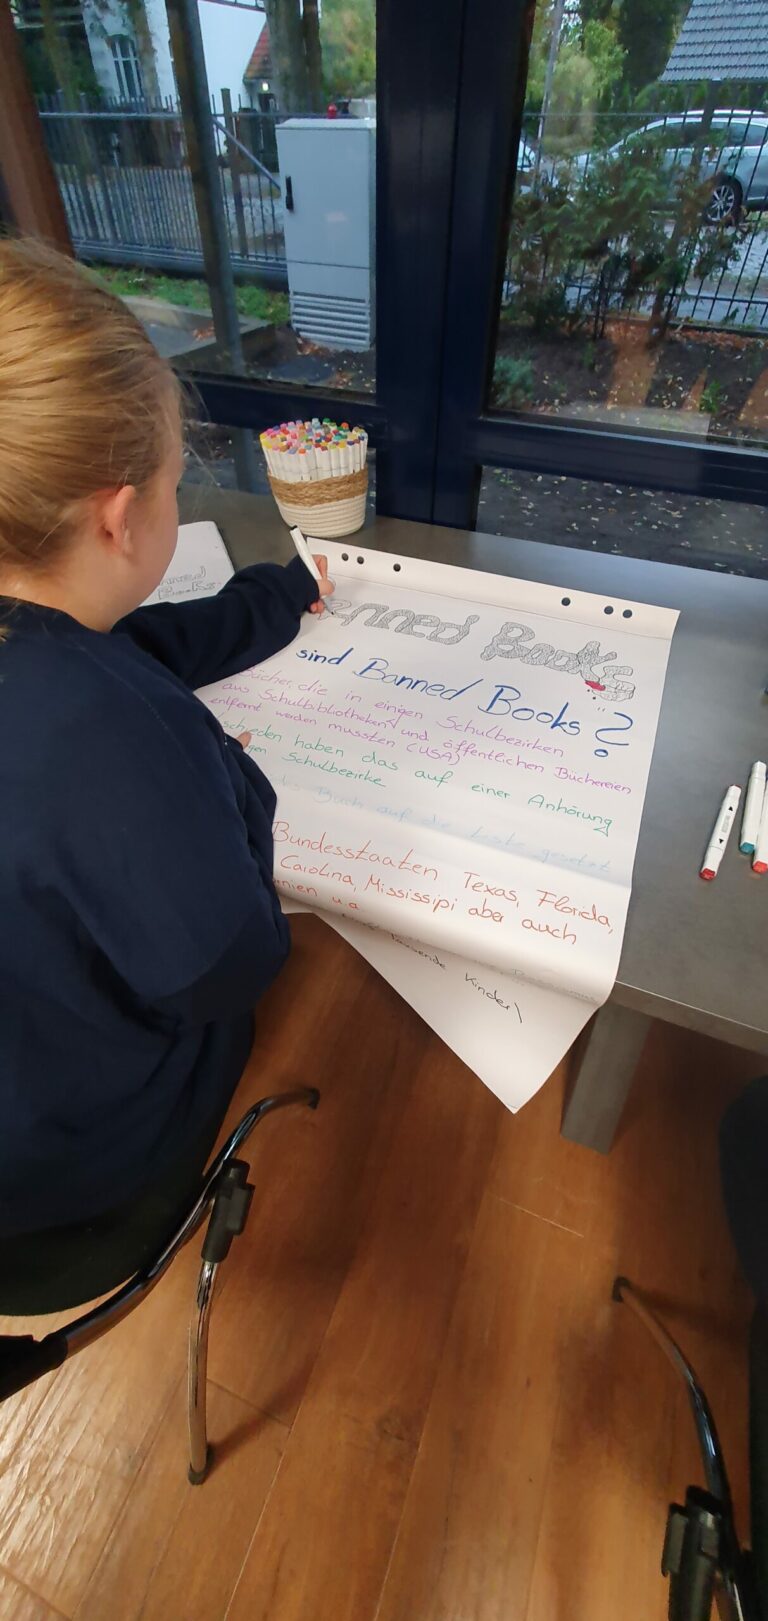 Banned Books
Banned Books
sind Banned Books?
Bücher, die in einigen Schulbezirken
aus Schulbibliotheken und öffentlichen Büchereien
entfernt werden mussten (USA)
schieden haben das auf einer Anhörung
gen Schulbezirke
Buch auf die Liste gesetzt
Bundesstaaten Texas, Florida,
Carolina, Mississipi aber auch
nien u.a
tausende Kinder)